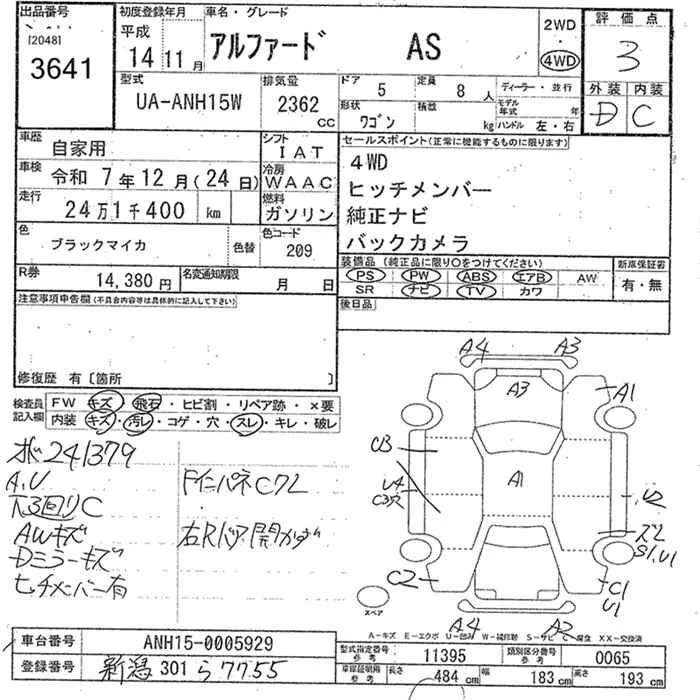 出品番号
[2048]
3641
初度登録年月
平成
14 11 月
車名・グレード
アルファード AS
2WD
・
4WD
評価点
3
外装 内装
D C
型式
UA-ANH15W
排気量
2362
cc
ドア 5
定員 8 人
形状 ワゴン
積載 kg
ディーラー・並行
モデル年式 年
ハンドル 左・右
車歴 自家用
車検 令和 7 年 12 月 (24 日)
走行 24 万 1 千 400 km
色 ブラックマイカ
色替
シフト IAT
冷房 WAAC
燃料 ガソリン
色コード 209
R券 14,380 円
名変通知期限 月 日
セールスポイント(正常に機能するものに限ります)
4WD
ヒッチメンバー
純正ナビ
バックカメラ
装備品 (純正品に限り○をつけてください)
PS PW ABS エアB AW
SR ナビ TV カワ
新車保証書
有・無
後日品
注意事項申告欄(不具合内容等は具体的に記入して下さい)
修復歴 有〔箇所 〕
検査員記入欄
FW キズ・飛石・ヒビ割・リペア跡・×要
内装 キズ・汚レ・コゲ・穴・スレ・キレ・破レ
241379
A,U
下3回りC
AWキズ
Dミラーキズ
ヒッチメーバー有
Fインパネクワレ
右Rドア開かず
A4 A3
A3
A1
U3
U4
A1
U2
S1,U1
C2
C1
U1
A4 A2
スペア
A-キズ E-エクボ U-凹み W-補修跡 S-サビ C-腐食 XX-交換済
車台番号 ANH15-0005929
登録番号 新潟 301 ら 7755
型式指定番号 参考 11395
類別区分番号 参考 0065
車庫証明用 参考 長さ 484 cm 幅 183 cm 高さ 193 cm